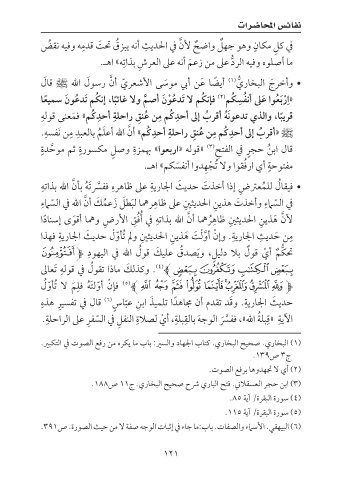 نفائس المحاضرات
في كل مكان وهو جهلٌ واضحٌ لأنَّ في الحديثِ أنه يبزقُ تحتَ قدمِه وفيه نقضُ
ما أصلوه وفيه الردُّ على من زعمَ أنه على العرشِ بذاتِه» اهـ.
• وأخرجَ البخاريُّ(١) أيضًا عَن أبي موسَى الأشعريّ أنَّ رسولَ الله ﷺ قالَ
«اِرْبَعُوا عَلى أنفُسِكُم(٢) فإنكُم لا تَدعُوْنَ أصمَّ ولا غائبًا، إنكُم تَدعُونَ سميعًا
قريبًا، والذي تدعونَهُ أقربُ إلى أحدِكُم مِن عُنقِ راحلةِ أحدِكُم» فمَعنى قولِه
ﷺ «أقربُ إلى أحدِكُم مِن عُنقِ راحلةِ أحدِكُم» أنَّ الله أعلَمُ بالعبدِ مِن نَفسِهِ.
قال ابنُ حجرٍ في الفتحِ(٣) «قوله «اربعوا» بهمزةِ وصلٍ مكسورةٍ ثم موحَّدةٍ
مفتوحةٍ أي ارفُقوا ولا تُجْهِدوا أنفسَكم» اهـ.
• فيقالُ للمُعترضِ إذا أخذتَ حديثَ الجاريةِ على ظاهرِه ففسَّرتَهُ بأنَّ الله بذاتِه
في السّماءِ وأخذتَ هذينِ الحديثينِ على ظاهِرهما لبَطَلَ زَعمُكَ أنَّ الله في السّماءِ
لأنَّ هَذينِ الحديثينِ ظاهِرُهما أنَّ الله بذاتِه في أُفُقِ الأرضِ وهما أقوَى إسنادًا
مِن حَديثِ الجاريةِ. وإنْ أوّلتَ هَذينِ الحديثينِ ولم تُأوّل حديثَ الجاريةِ فهذا
تحكّمٌ أيْ قولٌ بلا دليلٍ، ويَصدقُ عليكَ قولُ الله في اليهودِ ﴿أَفَتُؤْمِنُونَ
بِبَعْضِ ٱلْكِتَٰبِ وَتَكْفُرُونَ بِبَعْضٍ﴾(٤). وكذلكَ ماذا تقولُ في قولِه تَعالى
﴿وَلِلَّهِ ٱلْمَشْرِقُ وَٱلْمَغْرِبُ فَأَيْنَمَا تُوَلُّوا۟ فَثَمَّ وَجْهُ ٱللَّهِ﴾(٥) فإنْ أوّلتَهُ فلِمَ لا تُأوّلُ
حديثَ الجاريةِ. وقَد تقدم أن مجاهدًا تلميذَ ابنِ عبّاسٍ(٦) قال في تفسيرِ هذِهِ
الآيةِ «قِبلَةُ الله»، ففسَّرَ الوجهَ بالقِبلةِ، أيْ لصلاةِ النفلِ في السّفرِ على الراحلةِ.
(١) البخاري. صحيح البخاري. كتاب الجهاد والسير: باب ما يكره من رفع الصوت في التكبير.
ج٣ ص١٣٩.
(٢) أي لا تجهدوها برفع الصوت.
(٣) ابن حجر العسقلاني. فتح الباري شرح صحيح البخاري. ج١١ ص١٨٨.
(٤) سورة البقرة/ آية ٨٥.
(٥) سورة البقرة/ آية ١١٥.
(٦) البيهقي. الأسماء والصفات. باب: ما جاء في إثبات الوجه صفة لا من حيث الصورة. ص٣٩١.
١٢١